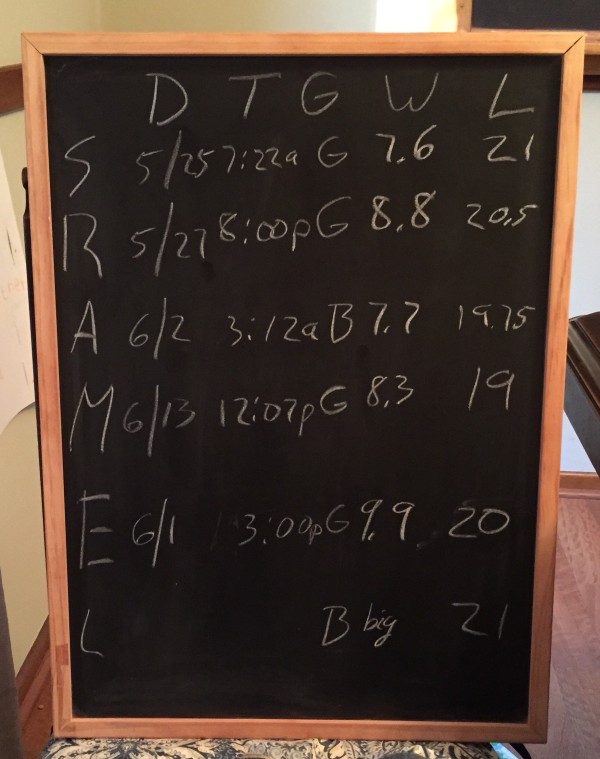 D T G W L
S 5/25 7:22a G 7.6 21
R 5/27 8:00p G 8.8 20.5
A 6/2 3:12a B 7.7 19.75
M 6/13 12:07p G 8.3 19
E 6/1 3:00p G 9.9 20
L B big 21